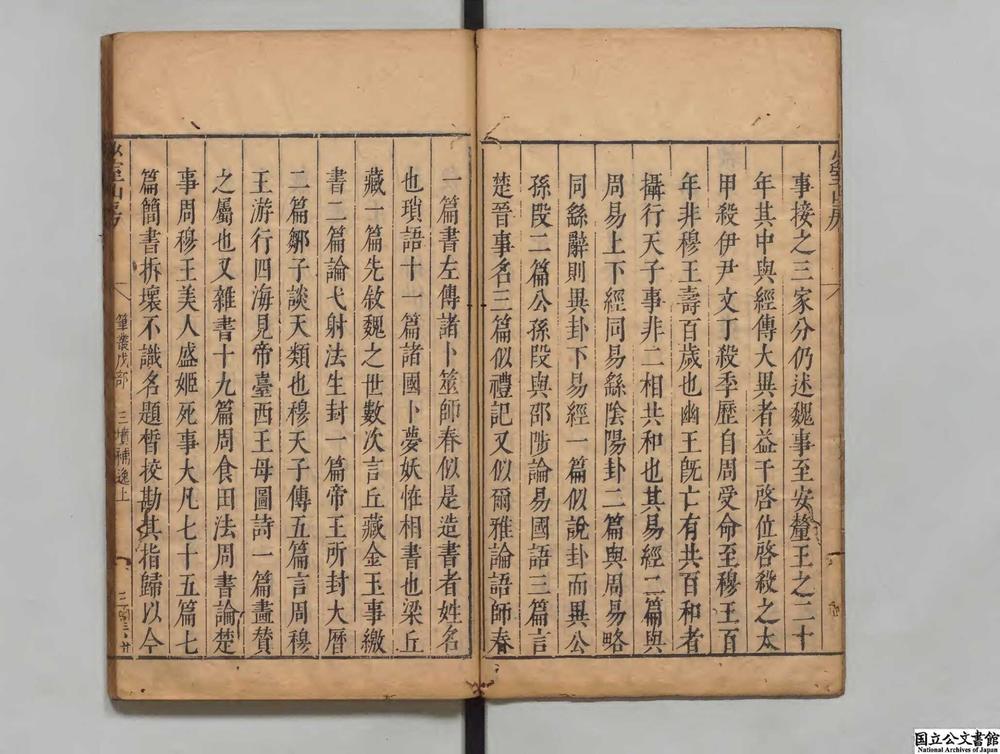 事接之三家分仍述魏事至安釐王之二十
年其中與經傳大異者益干啓位啓殺之太
甲殺伊尹文丁殺季歷自周受命至穆王百
年非穆王壽百歲也幽王旣亡有共百和者
攝行天子事非二相共和也其易經二篇與
周易上下經同易繇陰陽卦二篇與周易略
同繇辭則異卦下易經一篇似說卦而異公
孫段二篇公孫段與邵陟論易國語三篇言
楚晉事名三篇似禮記又似爾雅論語師春
一篇書左傳諸卜筮師春似是造書者姓名
也瑣語十一篇諸國卜夢妖惟相書也梁丘
藏一篇先敘魏之世數次言丘藏金玉事繳
書二篇論弋射法生封一篇帝王所封大曆
二篇鄒子談天類也穆天子傳五篇言周穆
王游行四海見帝臺西王母圖詩一篇畫贊
之屬也又雜書十九篇周食田法周書論楚
事周穆王美人盛姬死事大凡七十五篇七
篇簡書拆壞不識名題晳挍勘其指歸以今
筆叢戊部 三墳補逸上 三
国立公文書館
National Archives of Japan